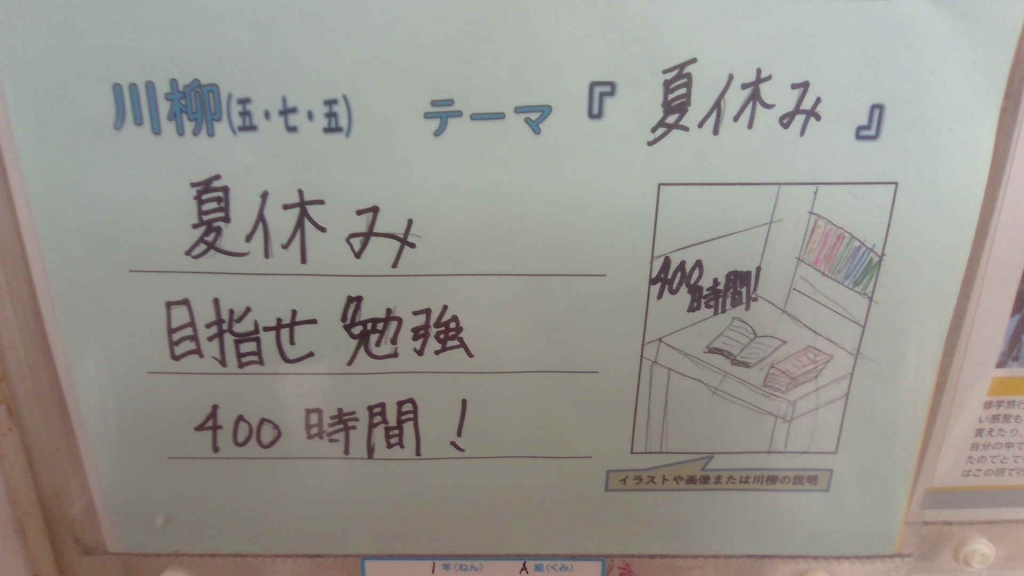 川柳(五・七・五) テーマ『夏休み』
夏休み
目指せ勉強
400時間！
400
時間！
イラストや画像または川柳の説明
1年(ねん) A組(くみ)
修学旅行
い感覚も
覚えたり、
自分の中で
たのでとて
はこの班で行